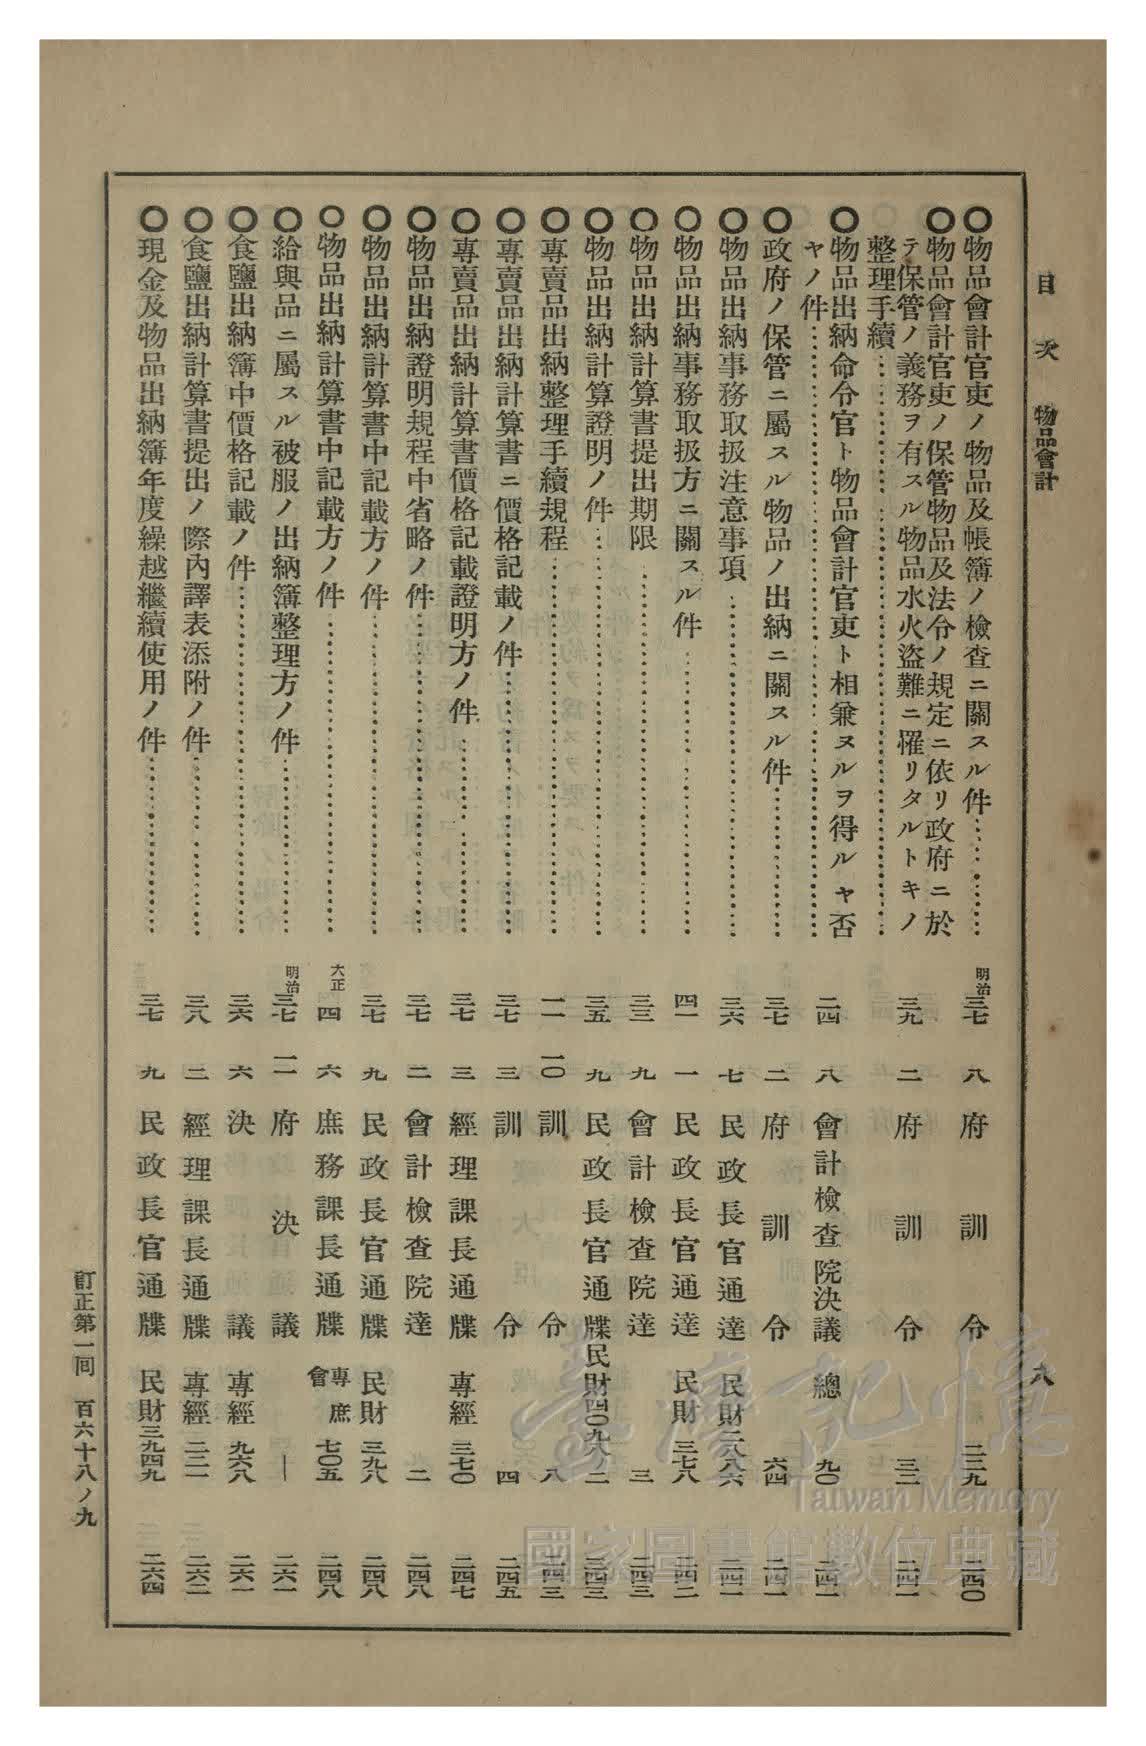 目次 物品會計 八
〇物品會計官吏ノ物品及帳簿ノ檢査ニ關スル件 明治三七 八 府訓令 二三九 二四〇
〇物品會計官吏ノ保管物品及法令ノ規定ニ依リ政府ニ於
テ保管ノ義務ヲ有スル物品水火盜難ニ罹リタルトキノ
整理手續 三九 二 府訓令 三二 二四一
〇物品出納命令官ト物品會計官吏ト相兼ヌルヲ得ルヤ否
ヤノ件 二四 八 會計檢査院決議 總 九〇 二四一
〇政府ノ保管ニ屬スル物品ノ出納ニ關スル件 三七 二 府訓令 六四 二四一
〇物品出納事務取扱注意事項 三六 七 民政長官通達 民財二八八六 二四一
〇物品出納事務取扱方ニ關スル件 四一 一 民政長官通達 民財 三七八 二四二
〇物品出納計算書提出期限 三三 九 會計檢査院達 三 二四三
〇物品出納計算證明ノ件 三五 九 民政長官通牒 民財四〇九八ノ二 二四三
〇專賣品出納整理手續規程 一一 一〇 訓令 八 二四三
〇專賣品出納計算書ニ價格記載ノ件 三七 三 訓令 四 二四五
〇專賣品出納計算書價格記載證明方ノ件 三七 三 經理課長通牒 專經 三七〇 二四七
〇物品出納證明規程中省略ノ件 三七 二 會計檢査院達 二 二四八
〇物品出納計算書中記載方ノ件 三七 九 民政長官通牒 民財 三九八 二四八
〇物品出納計算書中記載方ノ件 大正四 六 庶務課長通牒 專庶會 七〇五 二四八
〇給與品ニ屬スル被服ノ出納簿整理方ノ件 明治三七 一一 府決議 ― 二六一
〇食鹽出納簿中價格記載ノ件 三六 六 決議 專經 九六八 二六一
〇食鹽出納計算書提出ノ際內譯表添附ノ件 三八 二 經理課長通牒 專經 二二一 二六二
〇現金及物品出納簿年度繰越繼續使用ノ件 三七 九 民政長官通牒 民財三九四九 二六四
訂正第一回 百六十八ノ九
臺灣記憶
Taiwan Memory
國家圖書館數位典藏